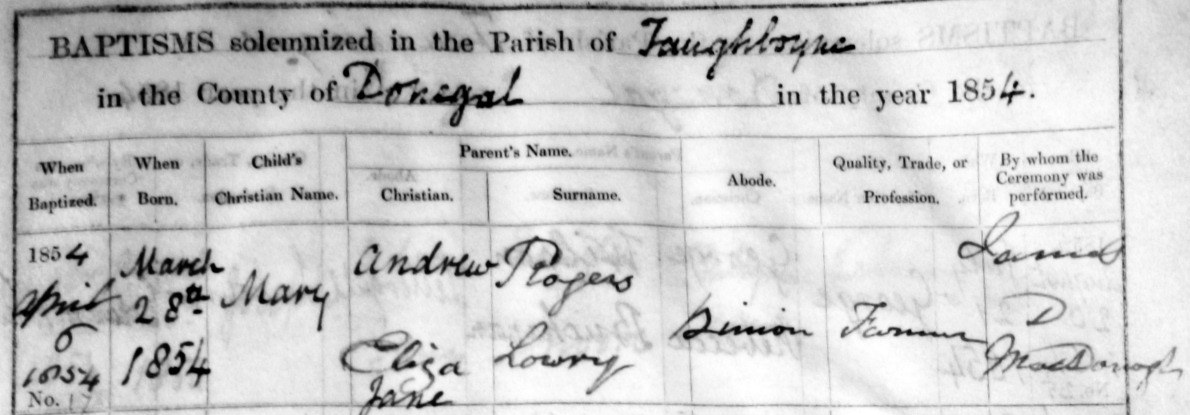 BAPTISMS solemnized in the Parish of Taughboyne
in the County of Donegal in the year 1854.
When Baptized.
When Born.
Child's Christian Name.
Parent's Name.
Christian.
Surname.
Abode.
Quality, Trade, or Profession.
By whom the Ceremony was performed.
1854
April
6
1854
No. 17
March
28th
1854
Mary
Andrew
Eliza
Jane
Rogers
Lowry
Binion
Farmer
James
D
MacDonogh